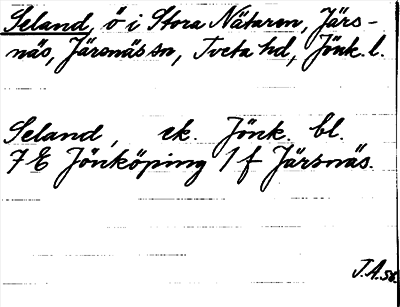 Seland, ö i Stora Nätaren, Järs-
näs, Järsnäs sn, Tveta hd, Jönk. l.
Seland, ek. Jönk. bl.
7 E Jönköping 1 f Järsnäs.
J.A. 58.